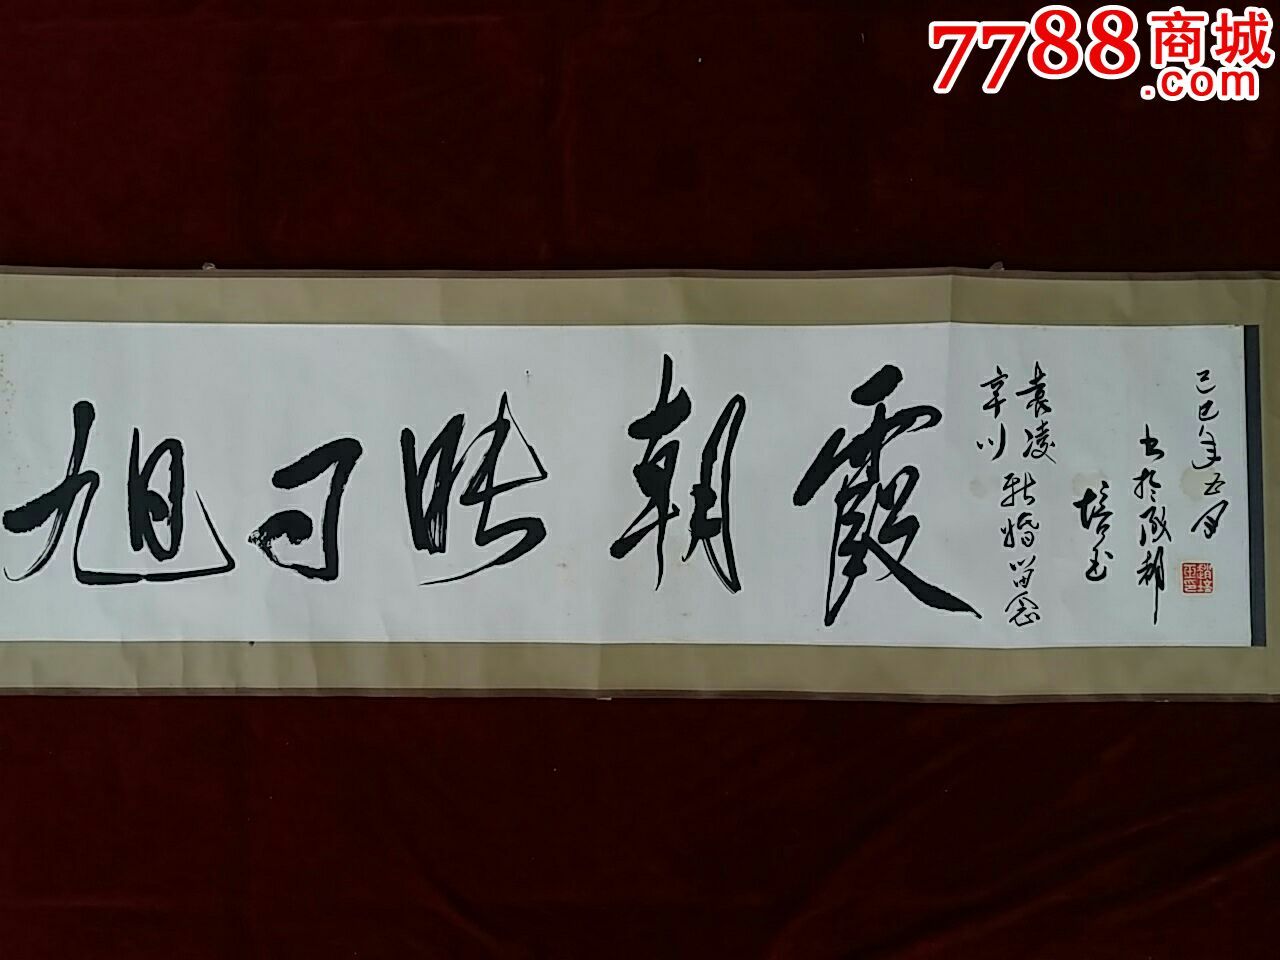 7788商城
.com
旭日映朝霞
袁凌
辛川 新婚留念
己巳年五月
书于成都
培玉